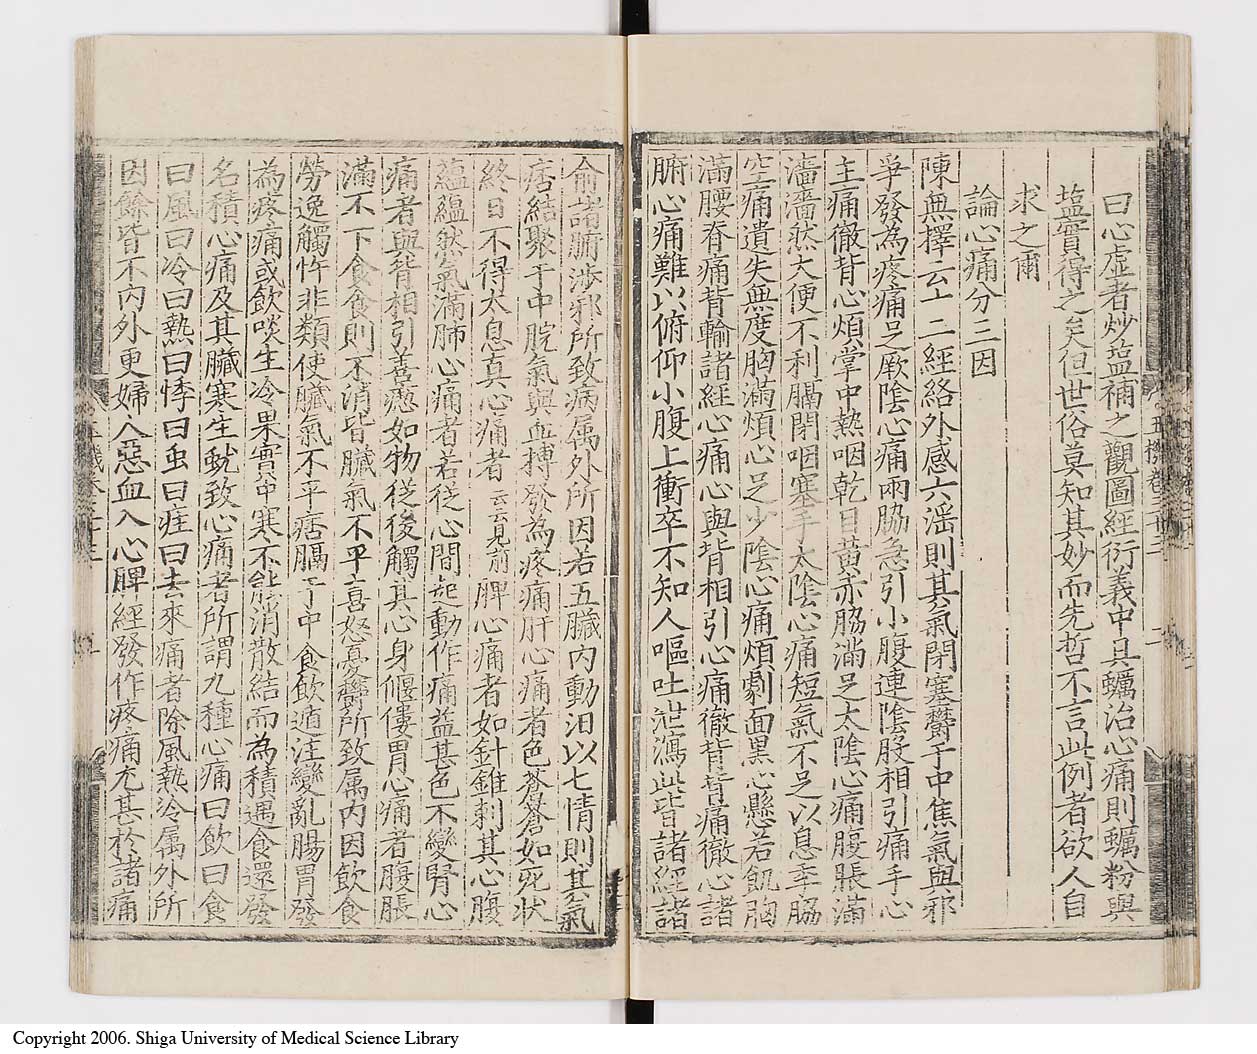 曰心虛者炒塩補之觀圖經衍義中眞蠣治心痛則蠣粉與
塩實得之矣但世俗莫知其妙而先哲不言此例者欲人自
求之爾
論心痛分三因
陳無擇云十二經絡外感六淫則其氣閉塞鬱于中焦氣與邪
爭發為疼痛足厥陰心痛兩脇急引小腹連陰股相引痛手心
主痛徹背心煩掌中熱咽乾目黃赤脇滿足太陰心痛腹脹滿
濇濇然大便不利膈閉咽塞手太陰心痛短氣不足以息季脇
空痛遺失無度胸滿煩心足少陰心痛煩劇面黑心懸若飢胸
滿腰脊痛背輸諸經心痛心與背相引心痛徹背背痛徹心諸
腑心痛難以俯仰小腹上衝卒不知人嘔吐泄瀉此皆諸經諸
俞諸腑渉邪所致病属外所因若五臟內動汨以七情則其氣
痞結聚于中脘氣與血搏發為疼痛肝心痛者色蒼蒼如死状
終日不得太息真心痛者云云見前脾心痛者如針錐刺其心腹
蘊蘊然氣滿肺心痛者若從心間起動作痛益甚色不變腎心
痛者與背相引善瘛如物從後觸其心身偃僂胃心痛者腹脹
滿不下食食則不消皆臟氣不平喜怒憂鬱所致属內因飲食
勞逸觸忤非類使臟氣不平痞膈于中食飲遁注變亂腸胃發
為疼痛或飲啖生冷果實中寒不能消散結而為積遇食還發
名積心痛及其臟寒生蚘致心痛者所謂九種心痛曰飲曰食
曰風曰冷曰熱曰悸曰虫曰疰曰去來痛者除風熱冷属外所
因餘皆不內外更婦人惡血入心脾經發作疼痛尤甚於諸痛